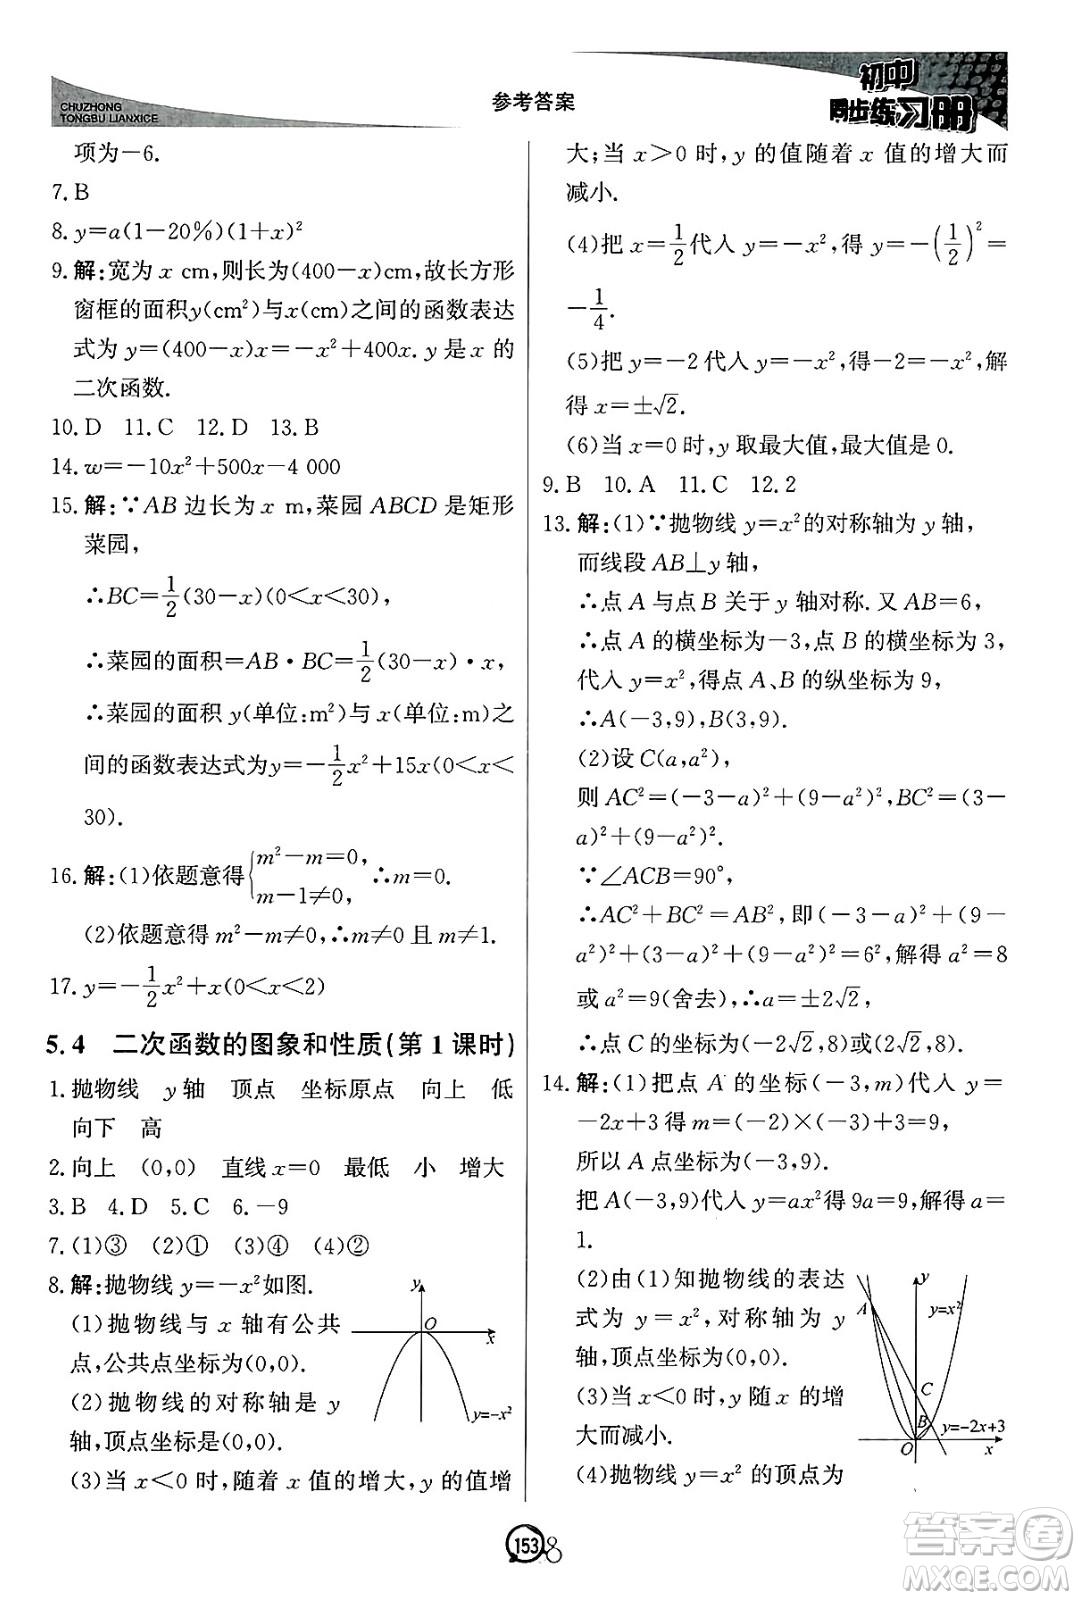 CHUZHONG
TONGBU LIANXICE
参考答案
初中
同步练习册
项为－6.
7. B
8. y=a(1－20%)(1+x)²
9. 解:宽为 x cm,则长为(400－x)cm,故长方形
窗框的面积y(cm²)与x(cm)之间的函数表达
式为 y=(400－x)x=－x²+400x. y 是 x 的
二次函数.
10. D　11. C　12. D　13. B
14. w=－10x²+500x－4 000
15. 解:∵AB 边长为 x m,菜园 ABCD 是矩形
菜园,
∴BC=1/2(30－x)(0<x<30),
∴菜园的面积=AB·BC=1/2(30－x)·x,
∴菜园的面积 y(单位:m²)与 x(单位:m)之
间的函数表达式为y=－1/2x²+15x(0<x<
30).
16. 解:(1)依题意得{m²－m=0, m－1≠0, ∴m=0.
(2)依题意得 m²－m≠0,∴m≠0 且 m≠1.
17. y=－1/2x²+x(0<x<2)
5.4　二次函数的图象和性质(第1课时)
1. 抛物线　y 轴　顶点　坐标原点　向上　低
向下　高
2. 向上　(0,0)　直线 x=0　最低　小　增大
3. B　4. D　5. C　6. －9
7. (1)③　(2)①　(3)④　(4)②
8. 解:抛物线 y=－x²如图.
(1)抛物线与 x 轴有公共
点,公共点坐标为(0,0).
(2)抛物线的对称轴是 y
轴,顶点坐标为(0,0).
(3)当 x<0 时,随着 x 值的增大,y 的值增
y
O
x
y=－x²
大;当 x>0 时,y 的值随着 x 值的增大而
减小.
(4)把 x=1/2代入 y=－x²,得 y=－(1/2)²=
－1/4.
(5)把 y=－2 代入 y=－x²,得－2=－x²,解
得 x=±√2.
(6)当 x=0 时,y 取最大值,最大值是 0.
9. B　10. A　11. C　12. 2
13. 解:(1)∵抛物线 y=x²的对称轴为 y 轴,
而线段 AB⊥y 轴,
∴点 A 与点 B 关于 y 轴对称. 又 AB=6,
∴点 A 的横坐标为－3,点 B 的横坐标为 3,
代入 y=x²,得点 A、B 的纵坐标为 9,
∴A(－3,9),B(3,9).
(2)设 C(a,a²),
则 AC²=(－3－a)²+(9－a²)²,BC²=(3－
a)²+(9－a²)².
∵∠ACB=90°,
∴AC²+BC²=AB²,即(－3－a)²+(9－
a²)²+(3－a)²+(9－a²)²=6²,解得 a²=8
或 a²=9(舍去),∴a=±2√2,
∴点 C 的坐标为(－2√2,8)或(2√2,8).
14. 解:(1)把点 A 的坐标(－3,m)代入 y=
－2x+3 得 m=(－2)×(－3)+3=9,
所以 A 点坐标为(－3,9).
把 A(－3,9)代入 y=ax²得 9a=9,解得 a=
1.
(2)由(1)知抛物线的表达
式为 y=x²,对称轴为 y
轴,顶点坐标为(0,0).
(3)当 x<0 时,y 随 x 的增
大而减小.
(4)抛物线 y=x² 的顶点为
y
A
y=x²
C
B
y=－2x+3
O
x
153
8
答案卷
MXQE.COM